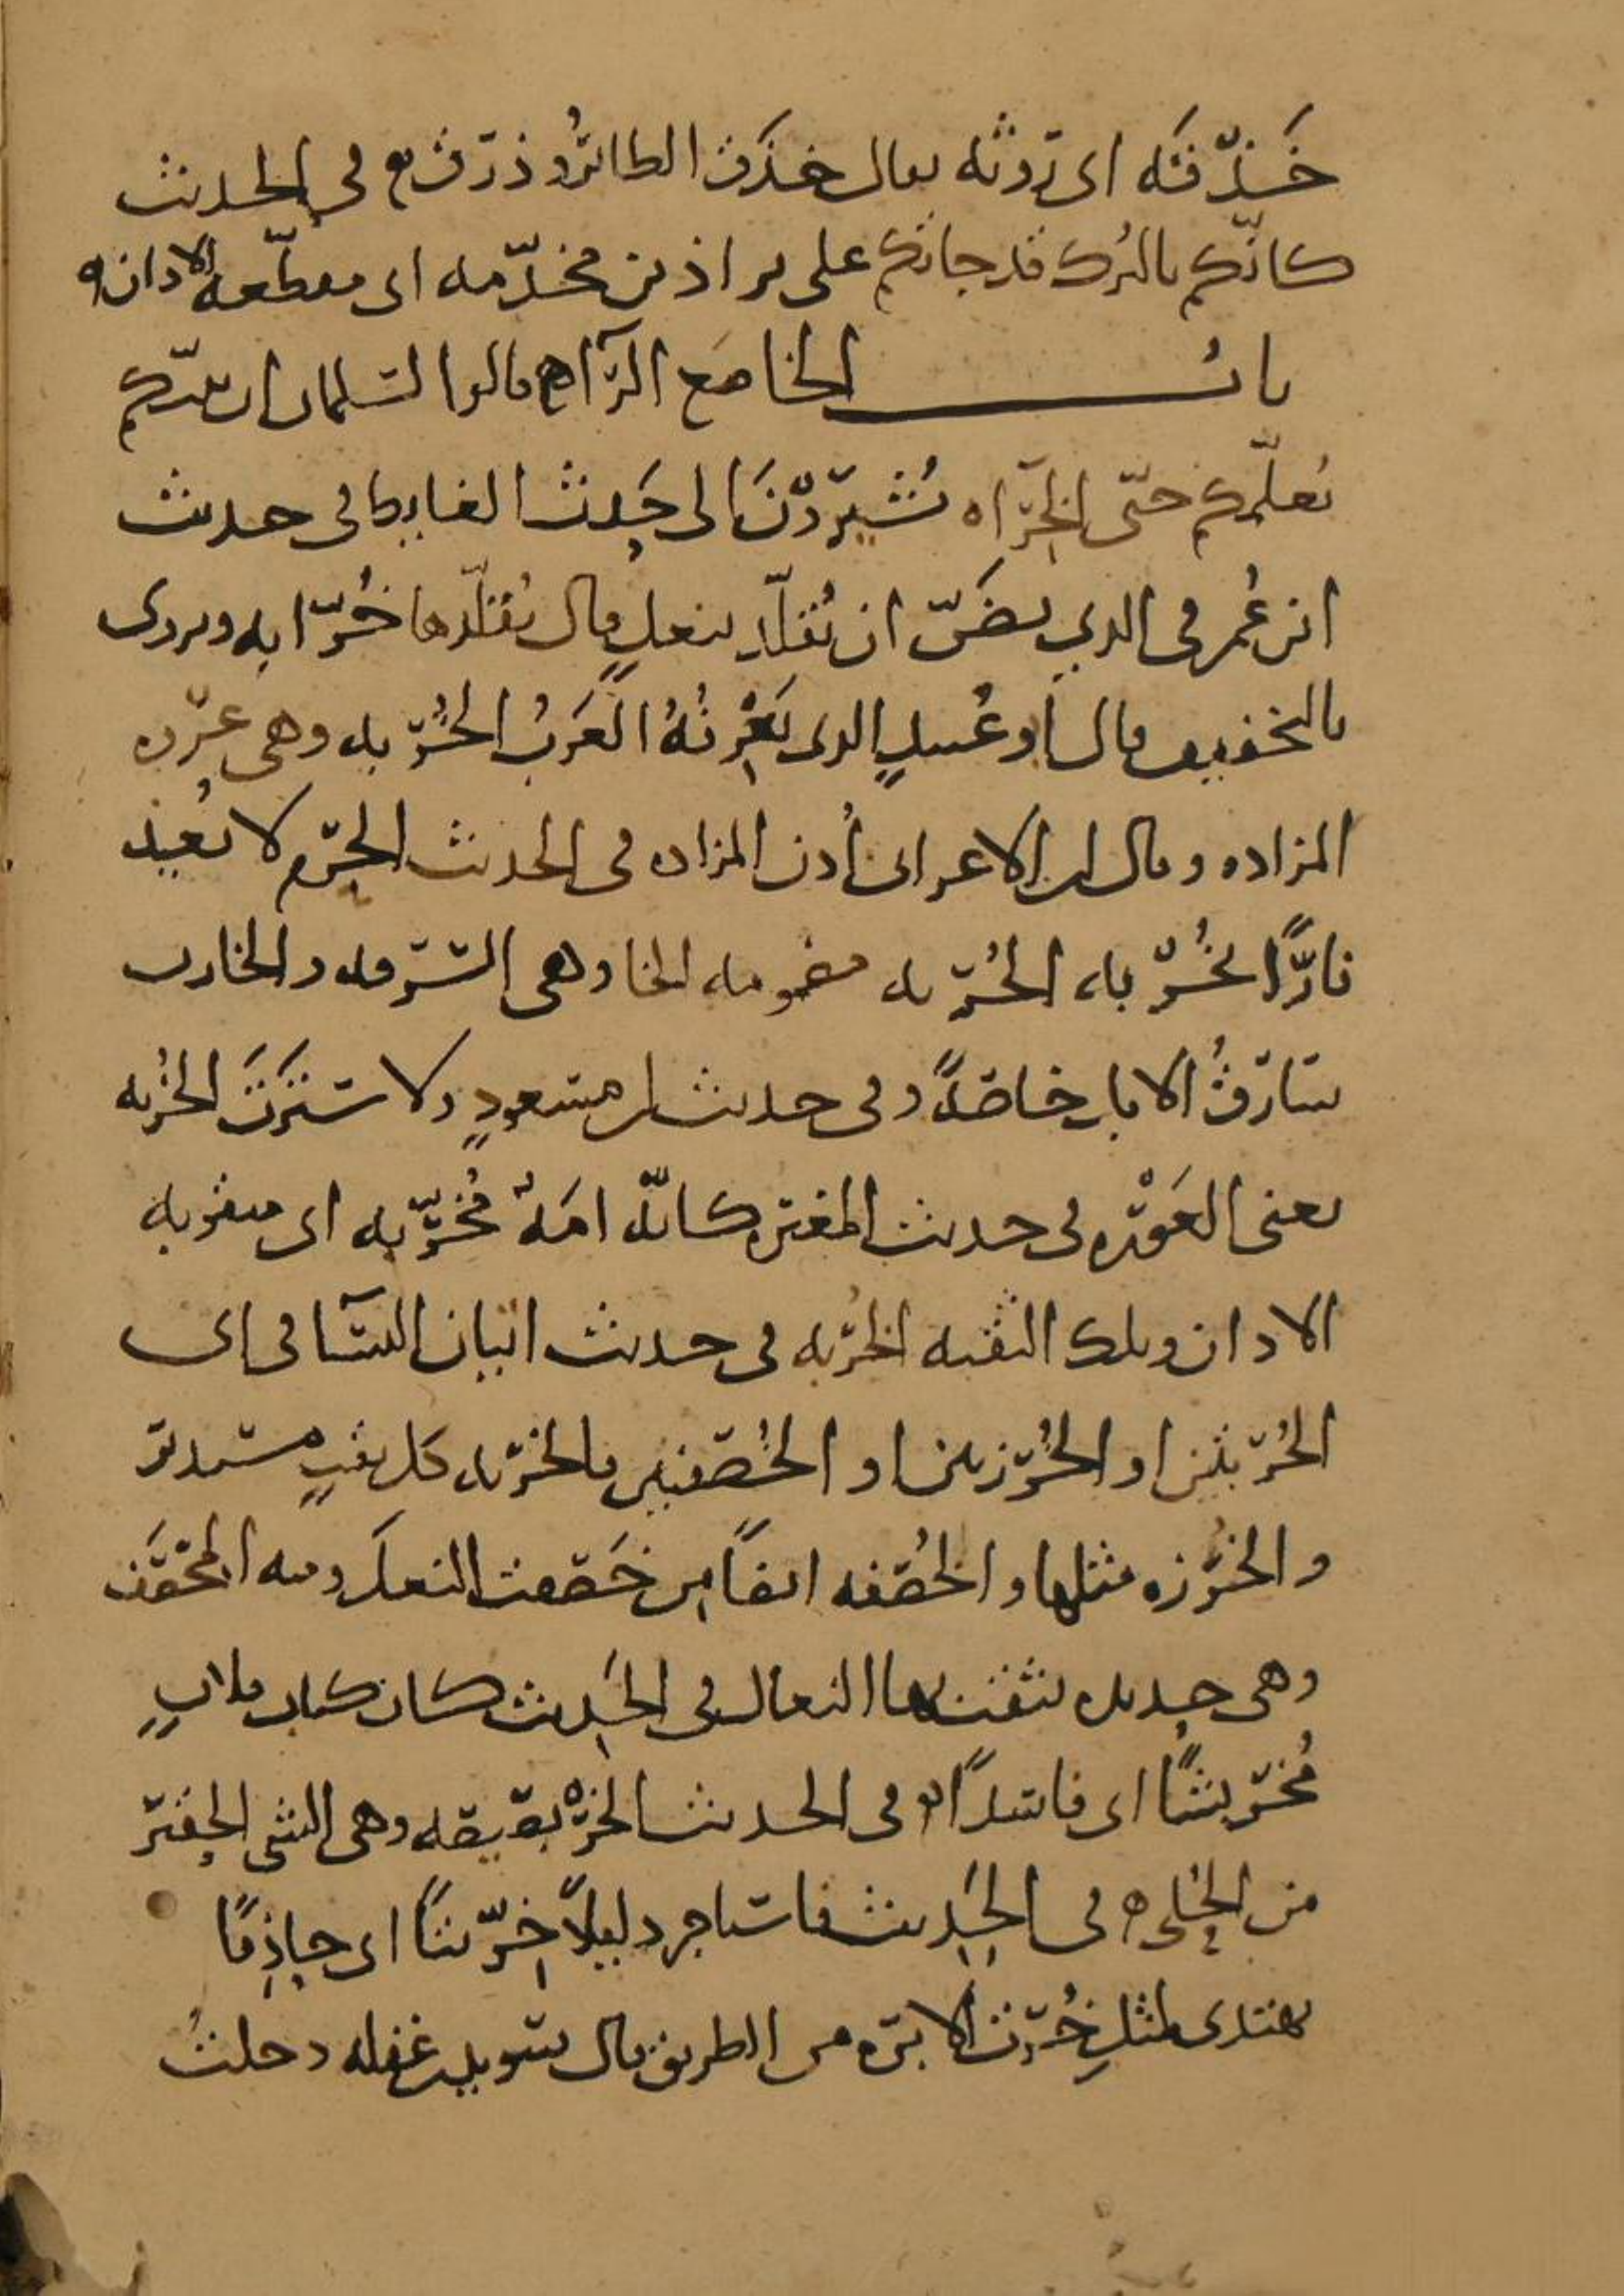 خَذْقَه اي روثه يقال خذق الطائر وذرق في الحديث
كانكم بالترك قد جاتكم على براذين مخذمه اى مقطعه الاذان
باب الخا مع الراء قالوا لسلمان ان نبيكم
يعلمكم حتى الخراه تشير دن الى حدث الغايط فى حديث
ابن عمر فى الذي يضن ان تقلد بنعل قال تقلدها خرابه ويروى
بالتخفيف قال ابو عبيد الذى يعرفه العرب الخربه وهى عروه
المزاده وقال ابن الاعرابى اذن المزاده فى الحديث الحرم لا يعيذ
فارا بخربه الخربه مضمومه الخا وهى السرقه والخارب
سارق الابل خاصة وفى حديث ابن مسعود ولا سترت الخربه
يعنى العوره فى حديث المغيره كانه امة مخربه اى مثقوبه
الاذان وتلك الثقبه الخربه فى حديث اتيان النسا فى اى
الخربتين او الخرزتين او الخصفتين فالخربه كل ثقب مستدير
والخرزه مثلها والخصفه ايضا من خصفت النعل ومنه المخصف
وهى حديده تثقب بها النعال فى الحديث كان كتاب فلان
مخربشا اى فاسدا فى الحديث الخربصيصه وهى الشى الحقير
من الحلى فى الحديث فاستاجر دليلا خريتا اى حاذقا
يهتدى لمثل خرت الابره من الطريق قال سويد بن غفله دخلت